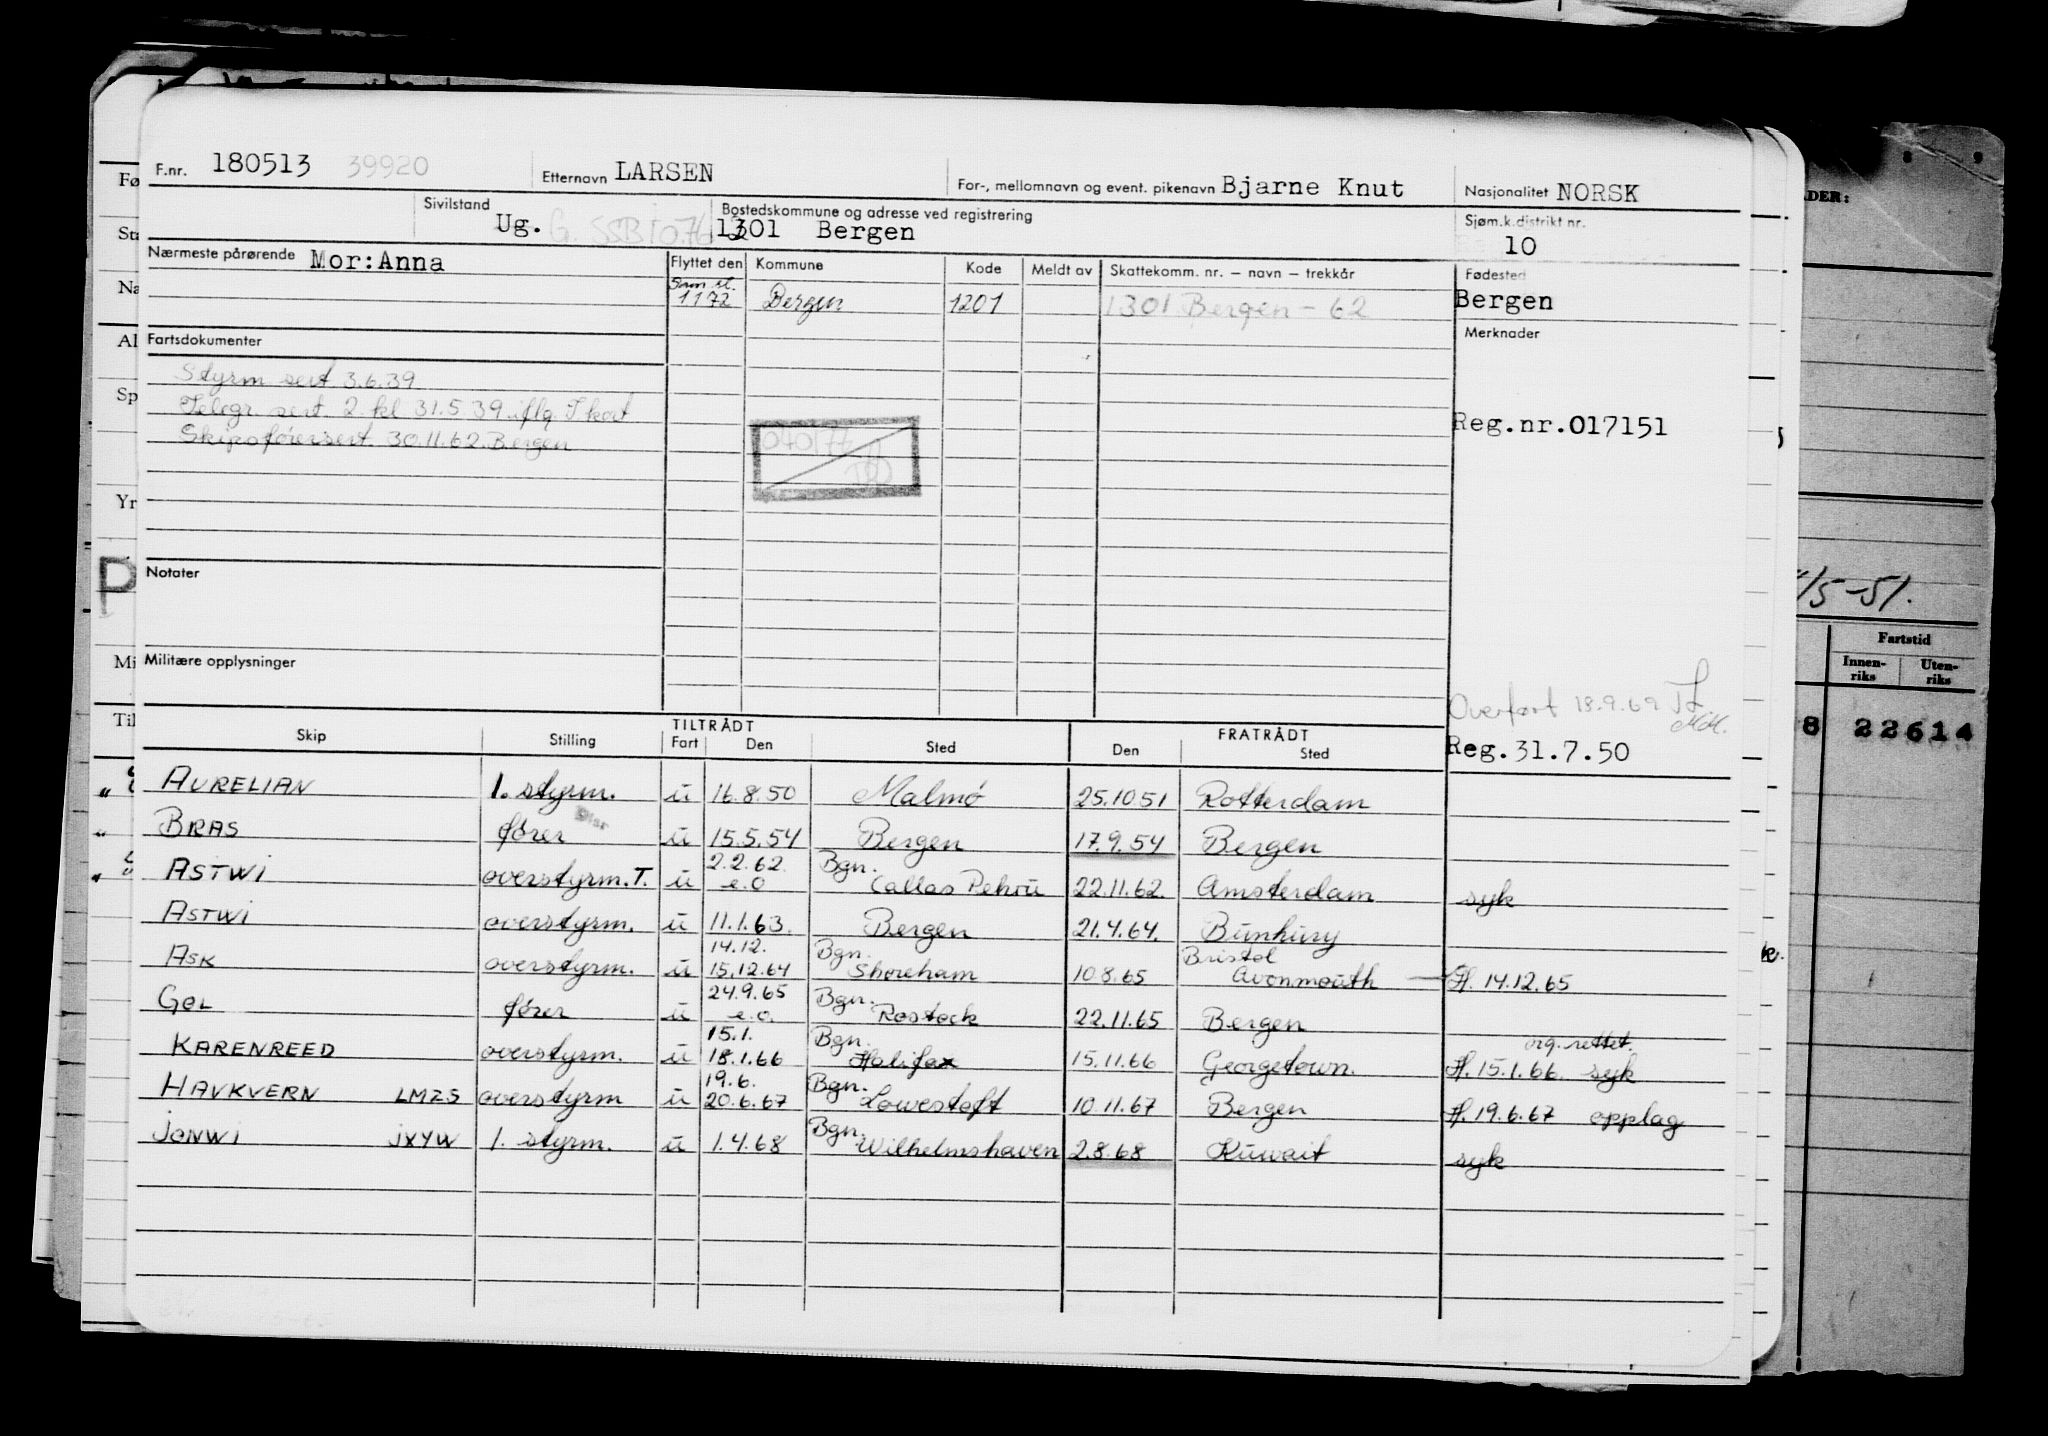 F.nr. 180513 39920 Etternavn LARSEN For-, mellomnavn og event. pikenavn Bjarne Knut Nasjonalitet NORSK
Sivilstand Ug. Bostedskommune og adresse ved registrering 1301 Bergen Sjøm.k.distrikt nr. 10
Nærmeste pårørende Mor:Anna Flyttet den Kommune Kode Meldt av Skattekomm. nr. – navn – trekkår Fødested
1172 Bergen 1201 1301 Bergen – 62 Bergen
Fartsdokumenter Merknader
Styrm sert 3.6.39
Telegr. sert. 2. kl 31.5.39 iflg. T kort
Skipsførersert. 30.11.62 Bergen
Reg.nr.017151
Notater
Militære opplysninger
Overført 18.9.69
Reg.31.7.50
TILTRÅDT FRATRÅDT
Skip Stilling Fart Den Sted Den Sted
AURELIAN 1. styrm. u 16.8.50 Malmö 25.10.51 Rotterdam
BRAS fører u 15.5.54 Bergen 17.9.54 Bergen
2.2.62. Bgn.
ASTWI overstyrm. T. u e.o Callao Pehru 22.11.62. Amsterdam syk
ASTWI overstyrm. u 11.1.63. Bergen 21.4.64. Bunbury
14.12. Bgn. Bristol
ASK overstyrm. u 15.12.64 Shoreham 10.8.65 Avonmouth H. 14.12.65
24.9.65 Bgn.
GOL fører u e.o. Rostock 22.11.65 Bergen
15.1. Bgn. org. rettet.
KARENREED overstyrm. u 18.1.66 Halifax 15.11.66 Georgetown. H. 15.1.66. syk
19.6. Bgn.
HAVKVERN LMZS overstyrm u 20.6.67 Lowestoft 10.11.67 Bergen H. 19.6.67 opplag
Bgn.
JONWI JXYW 1. styrm. u 1.4.68 Wilhelmshaven 2.8.68 Kuwait syk
Fø
Sta
Na
Al
Sp
Yr
P
Mi
Til
8 9
ADER:
/5-51.
Fartstid
Innen-
riks
Uten-
riks
8 22614